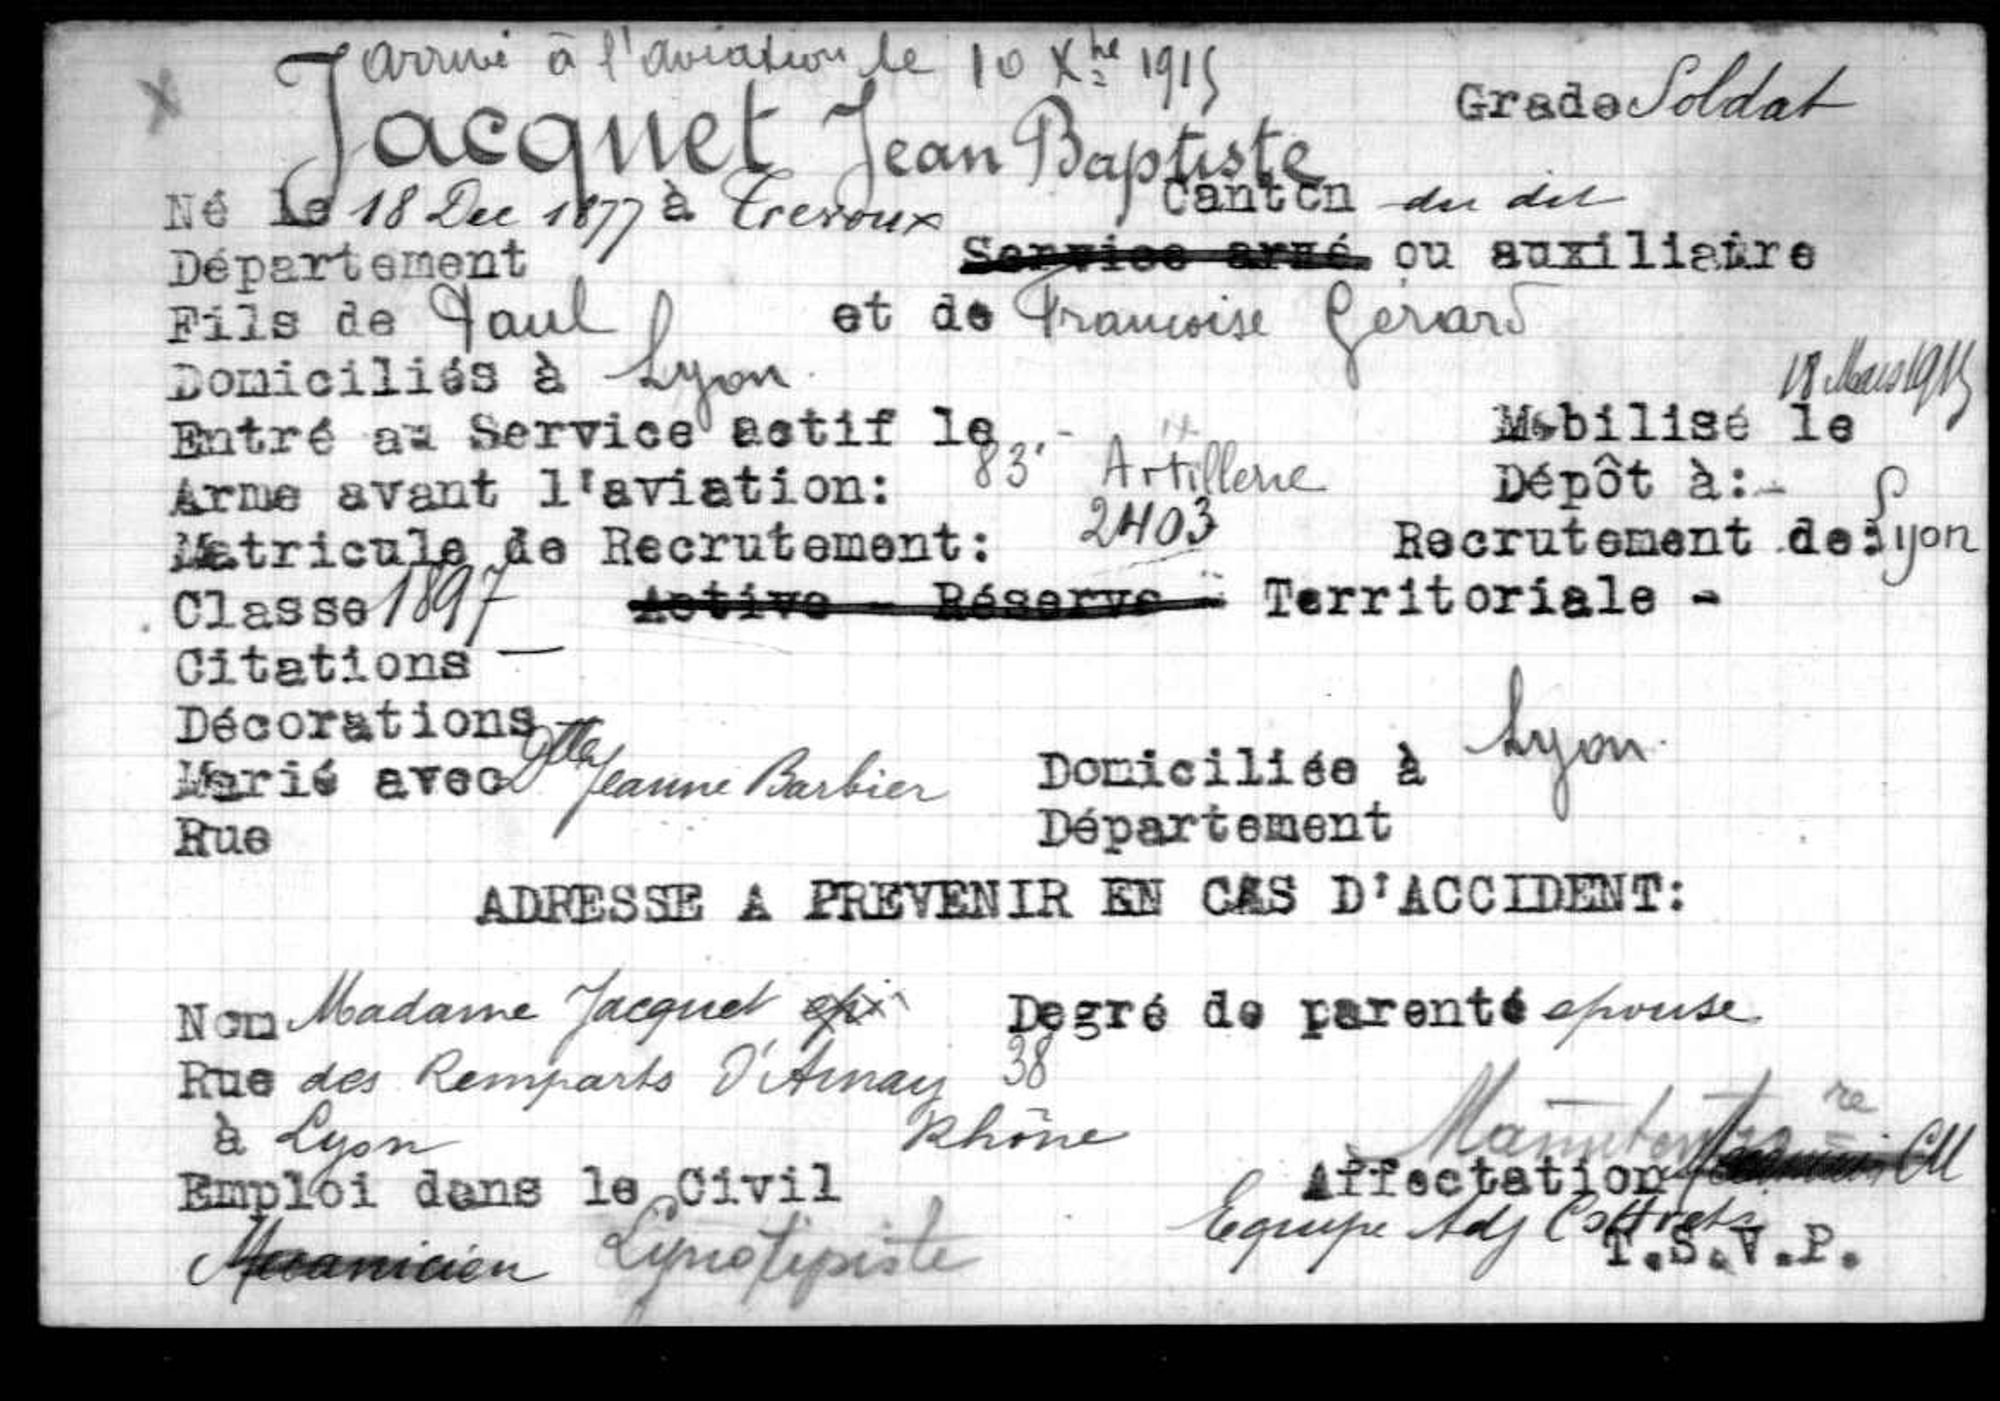 arrivé à l'aviation le 10 Xbre 1915
Jacquet Jean Baptiste
Grade Soldat
Né le 18 Dec 1877 à Trevoux Canton du dit
Département Service armé ou auxiliaire
Fils de Paul et de Francoise Gerard
Domiciliés à Lyon
Entré au Service actif le - Mobilisé le 18 Mars 1915
Arme avant l'aviation: 83' Artillerie Dépôt à:-
Matricule de Recrutement: 2403 Recrutement de: Lyon
Classe 1897 Active - Réserve - Territoriale -
Citations —
Décorations
Marié avec Jeanne Barbier Domiciliée à Lyon
Rue Département
ADRESSE A PREVENIR EN CAS D'ACCIDENT:
Nom Madame Jacquet Degré de parenté epouse
Rue des Remparts D'Ainay 38
à Lyon Rhône
Emploi dans le Civil Affectation CM
Mecanicien Lynotipiste Equipe Adj
T.S.V.P.